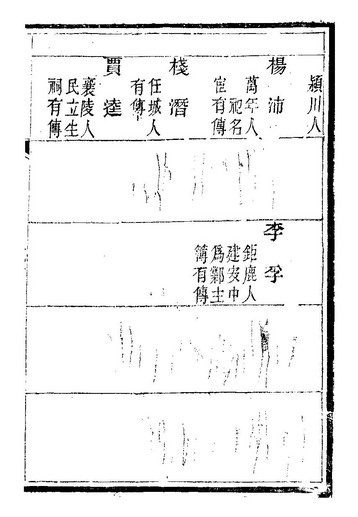 潁川人
楊沛
萬年人
祀名
宦有傳
棧潛
任城人
有傳
賈逵
襄陵人
民立生
祠有傳
李孚
鉅鹿人
建安中
爲鄴主
簿有傳